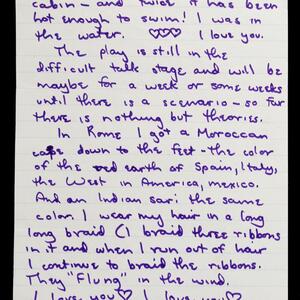 cabin — and twice it has been
hot enough to swim! I was in
the water. ♡♡♡ I love you.
The play is still in the
difficult talk stage and will be
maybe for a week or some weeks
until there is a scenario — so far
there is nothing but theories.
In Rome I got a Moroccan
cape down to the feet — the color
of the red earth of Spain, Italy,
the West in America, Mexico.
And an Indian sari the same
color. I wear my hair in a long
long braid (I braid three ribbons
in it and when I run out of hair
I continue to braid the ribbons.
They "flung" in the wind.
I love you ♡ I love you ♡